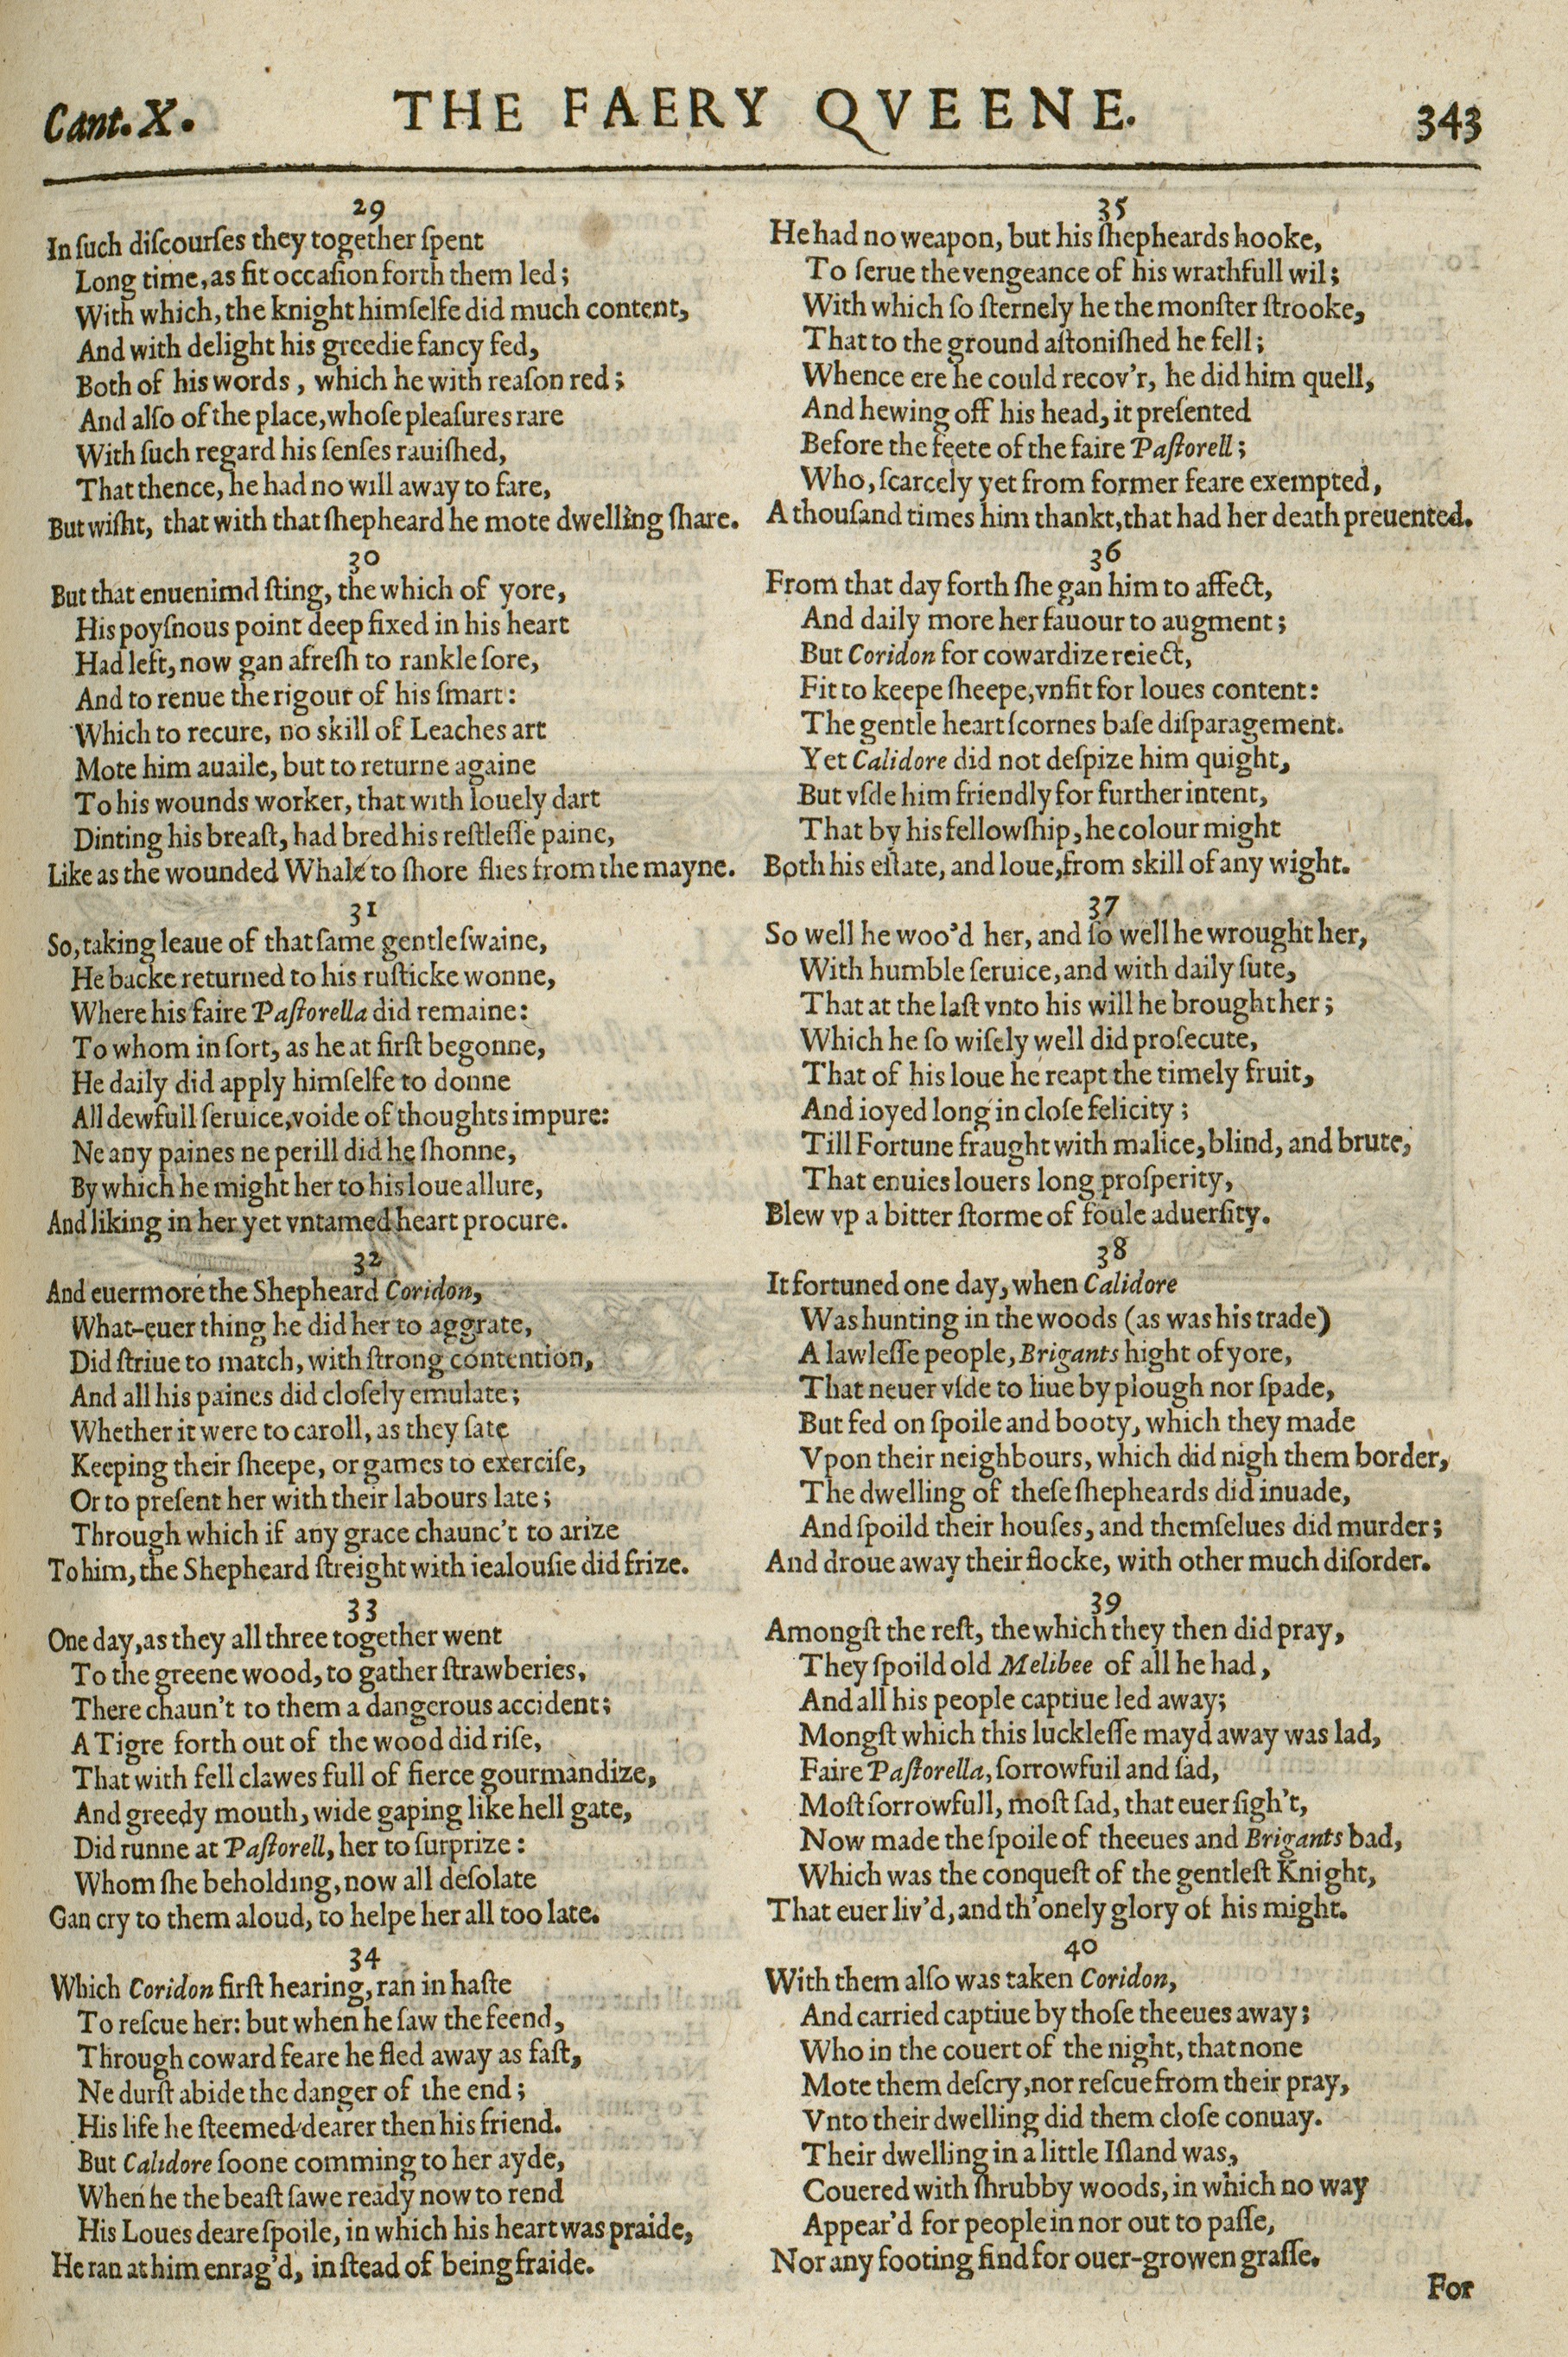 Cant. X.
THE FAERY QVEENE.
343
29
In ſuch diſcourſes they together ſpent
Long time, as fit occaſion forth them led;
With which, the knight himſelfe did much content,
And with delight his greedie fancy fed,
Both of his words, which he with reaſon red;
And alſo of the place, whoſe pleaſures rare
With ſuch regard his ſenſes rauiſhed,
That thence, he had no will away to fare,
But wiſht, that with that ſhepheard he mote dwelling ſhare.
30
But that enuenimd ſting, the which of yore,
His poyſnous point deep fixed in his heart
Had left, now gan afreſh to rankle ſore,
And to renue the rigour of his ſmart:
Which to recure, no skill of Leaches art
Mote him auaile, but to returne againe
To his wounds worker, that with louely dart
Dinting his breaſt, had bred his reſtleſſe paine,
Like as the wounded Whale to ſhore flies from the mayne.
31
So, taking leaue of that ſame gentle ſwaine,
He backe returned to his ruſticke wonne,
Where his faire Paſtorella did remaine:
To whom in ſort, as he at firſt begonne,
He daily did apply himſelfe to donne
All dewfull ſeruice, voide of thoughts impure:
Ne any paines ne perill did he ſhonne,
By which he might her to his loue allure,
And liking in her yet vntamed heart procure.
32
And euermore the Shepheard Coridon,
What-euer thing he did her to aggrate,
Did ſtriue to match, with ſtrong contention,
And all his paines did cloſely emulate;
Whether it were to caroll, as they ſate
Keeping their ſheepe, or games to exerciſe,
Or to preſent her with their labours late;
Through which if any grace chaunc't to arize
To him, the Shepheard ſtreight with iealouſie did frize.
33
One day, as they all three together went
To the greene wood, to gather ſtrawberies,
There chaun't to them a dangerous accident;
A Tigre forth out of the wood did riſe,
That with fell clawes full of fierce gourmandize,
And greedy mouth, wide gaping like hell gate,
Did runne at Paſtorell, her to ſurprize:
Whom ſhe beholding, now all deſolate
Gan cry to them aloud, to helpe her all too late.
34
Which Coridon firſt hearing, ran in haſte
To reſcue her: but when he ſaw the feend,
Through coward feare he fled away as faſt,
Ne durſt abide the danger of the end;
His life he ſteemed dearer then his friend.
But Calidore ſoone comming to her ayde,
When he the beaſt ſawe ready now to rend
His Loues deare ſpoile, in which his heart was praide,
He ran at him enrag'd, in ſtead of being fraide.
35
He had no weapon, but his ſhepheards hooke,
To ſerue the vengeance of his wrathfull wil;
With which ſo ſternely he the monſter ſtrooke,
That to the ground aſtoniſhed he fell;
Whence ere he could recov'r, he did him quell,
And hewing off his head, it preſented
Before the feete of the faire Paſtorell;
Who, ſcarcely yet from former feare exempted,
A thouſand times him thankt, that had her death preuented.
36
From that day forth ſhe gan him to affect,
And daily more her fauour to augment;
But Coridon for cowardize reiect,
Fit to keepe ſheepe, vnfit for loues content:
The gentle heart ſcornes baſe diſparagement.
Yet Calidore did not deſpize him quight,
But vſde him friendly for further intent,
That by his fellowſhip, he colour might
Both his eſtate, and loue, from skill of any wight.
37
So well he woo'd her, and ſo well he wrought her,
With humble ſeruice, and with daily ſute,
That at the laſt vnto his will he brought her;
Which he ſo wiſely well did proſecute,
That of his loue he reapt the timely fruit,
And ioyed long in cloſe felicity;
Till Fortune fraught with malice, blind, and brute,
That enuies louers long proſperity,
Blew vp a bitter ſtorme of foule aduerſity.
38
It fortuned one day, when Calidore
Was hunting in the woods (as was his trade)
A lawleſſe people, Brigants hight of yore,
That neuer vſde to liue by plough nor ſpade,
But fed on ſpoile and booty, which they made
Vpon their neighbours, which did nigh them border,
The dwelling of theſe ſhepheards did inuade,
And ſpoild their houſes, and themſelues did murder;
And droue away their flocke, with other much diſorder.
39
Amongſt the reſt, the which they then did pray,
They ſpoild old Melibee of all he had,
And all his people captiue led away;
Mongſt which this luckleſſe mayd away was lad,
Faire Paſtorella, ſorrowfull and ſad,
Moſt ſorrowfull, moſt ſad, that euer ſigh't,
Now made the ſpoile of theeues and Brigants bad,
Which was the conqueſt of the gentleſt Knight,
That euer liv'd, and th'onely glory of his might.
40
With them alſo was taken Coridon,
And carried captiue by thoſe theeues away;
Who in the couert of the night, that none
Mote them deſcry, nor reſcue from their pray,
Vnto their dwelling did them cloſe conuay.
Their dwelling in a little Iſland was,
Couered with ſhrubby woods, in which no way
Appear'd for people in nor out to paſſe,
Nor any footing find for ouer-growen graſſe.
For